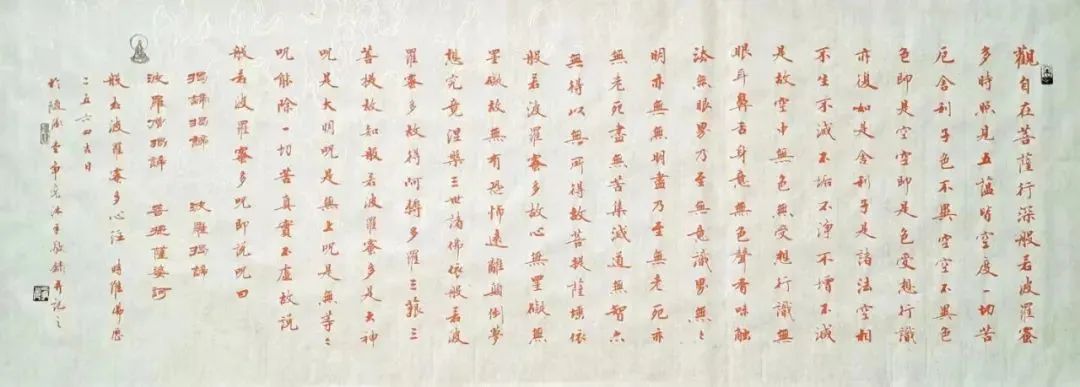 觀自在菩薩行深般若波羅蜜
多時照見五蘊皆空度一切苦
厄舍利子色不異空空不異色
色即是空空即是色受想行識
亦復如是舍利子是諸法空相
不生不滅不垢不淨不增不減
是故空中無色無受想行識無
眼耳鼻舌身意無色聲香味觸
法無眼界乃至無意識界無〻
明亦無無明盡乃至無老死亦
無老死盡無苦集滅道無智亦
無得以無所得故菩提薩埵依
般若波羅蜜多故心無罣礙無
罣礙故無有恐怖遠離顛倒夢
想究竟涅槃三世諸佛依般若波
羅蜜多故得阿耨多羅三藐三
菩提故知般若波羅蜜多是大神
咒是大明咒是無上咒是無等〻
咒能除一切苦真實不虛故說
般若波羅蜜多咒即說咒曰
揭諦揭諦 波羅揭諦
波羅僧揭諦 菩提薩婆訶
般若波羅蜜多心經 時維佛歷
二五六四吉日
於 敬錄并記之